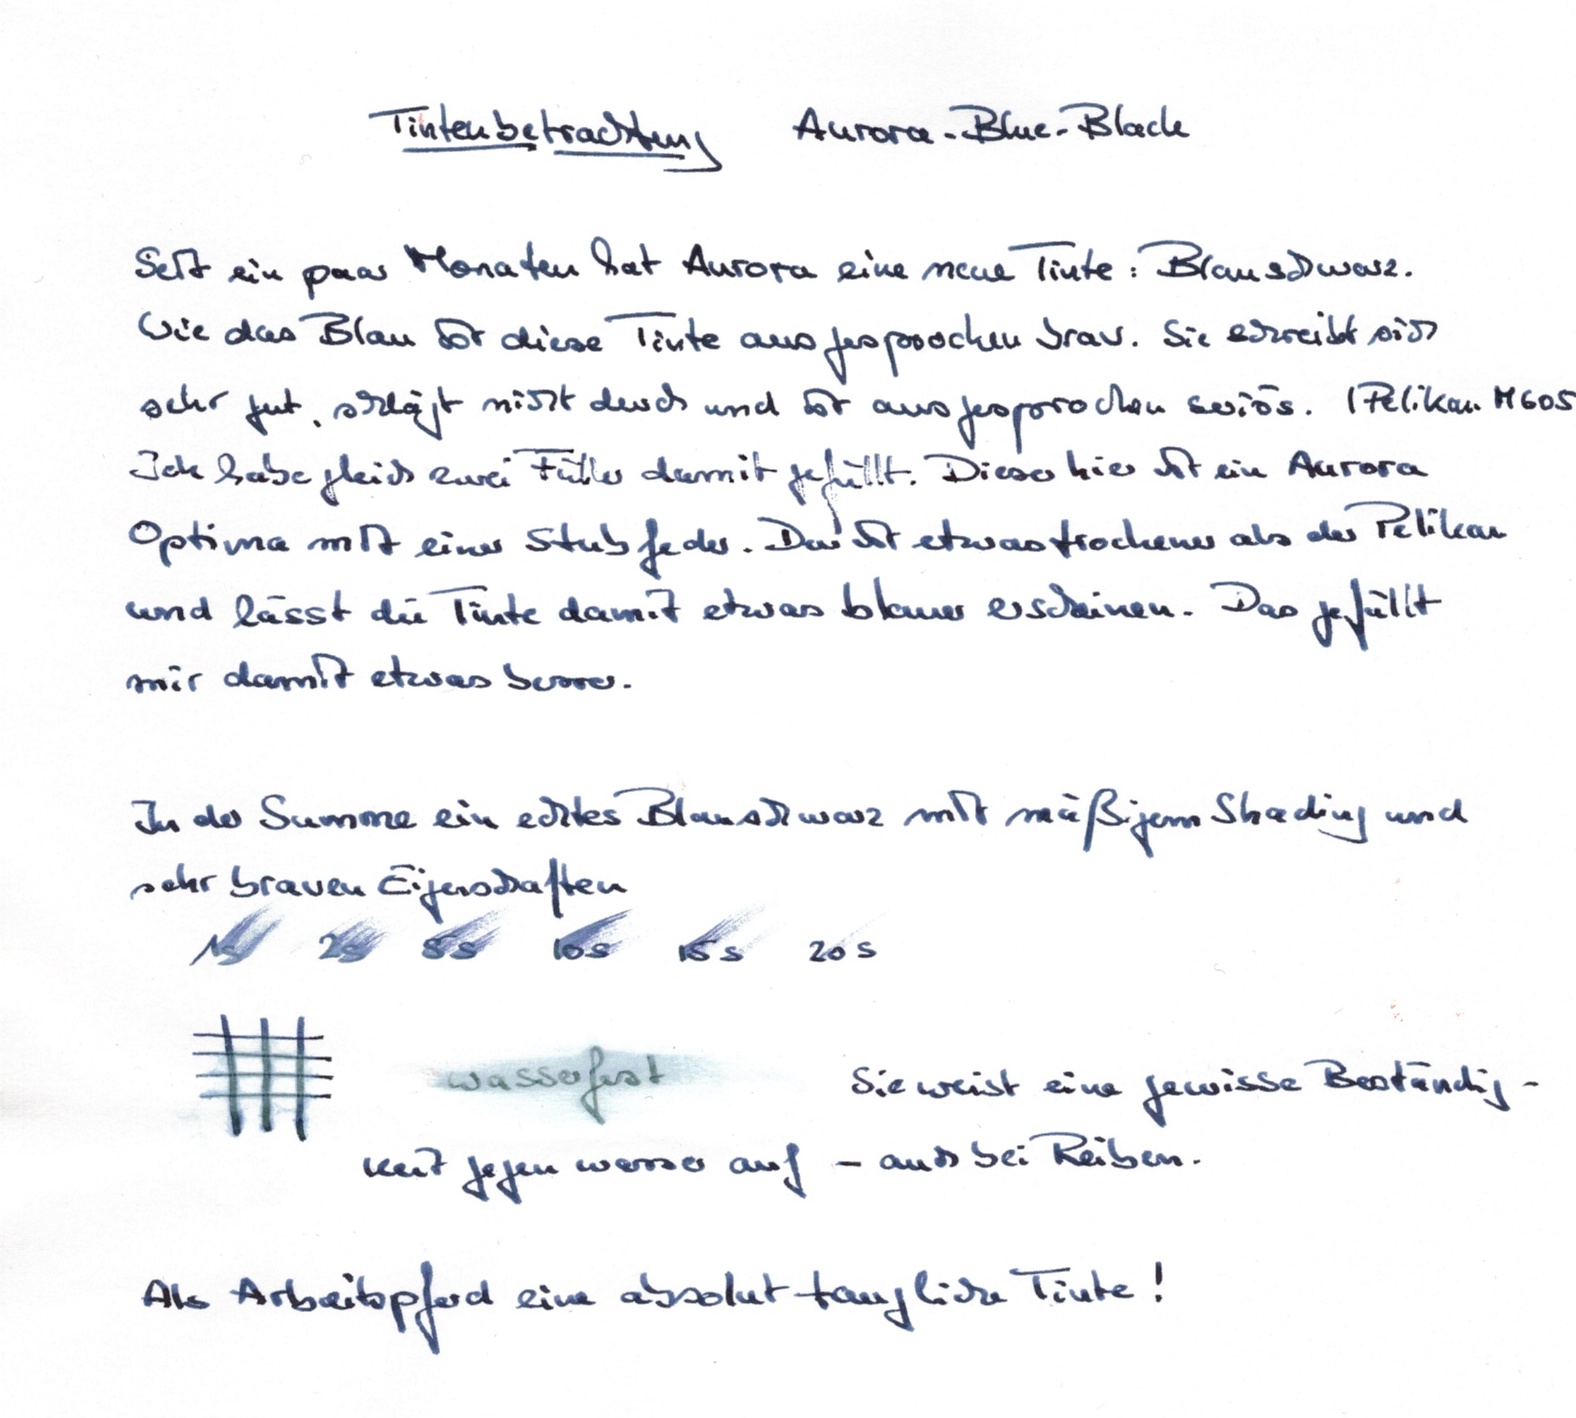 Tintenbetrachtung Aurora-Blue-Black
Seit ein paar Monaten hat Aurora eine neue Tinte: Blauschwarz.
Wie das Blau ist diese Tinte ausgesprochen brav. Sie schreibt sich
sehr gut, schlägt nicht durch und ist ausgesprochen seriös. (Pelikan M605
Ich habe gleich zwei Füller damit gefüllt. Dieser hier ist ein Aurora
Optima mit einer Stubfeder. Der ist etwas trockener als der Pelikan
und lässt die Tinte damit etwas blauer erscheinen. Das gefällt
mir damit etwas besser.
In der Summe ein echtes Blauschwarz mit mäßigem Shading und
sehr braven Eigenschaften
1s 2s 5s 10s 15s 20s
wasserfest Sie weist eine gewisse Beständig-
keit gegen wasser auf - auch bei Reiben.
Als Arbeitspferd eine absolut taugliche Tinte!